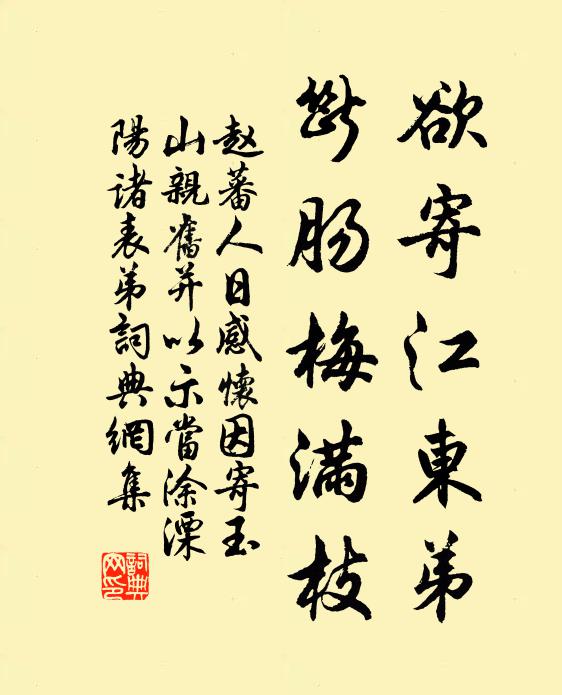 欲寄江東弟
斷腸梅滿枝
赵蕃人日感懷因寄玉
山親舊并以示當涂溧
陽诸表弟詞典網集
詞典网印